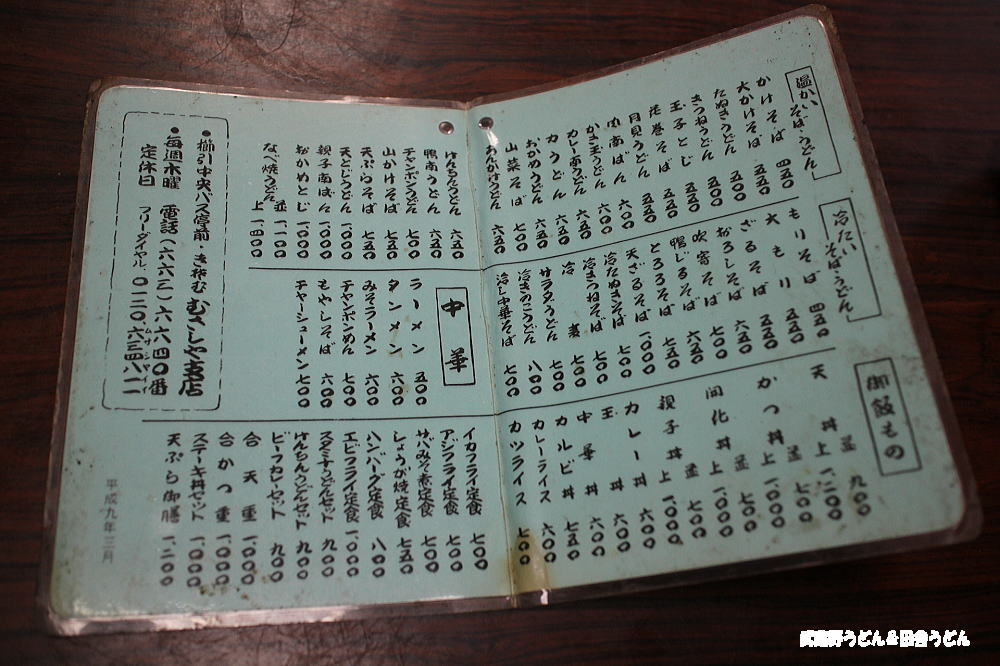 温かいそば・うどん
かけそば 四五〇
大かけそば 五五〇
たぬきうどん 五五〇
きつねうどん 五五〇
玉子とじ 五五〇
花巻そば 五五〇
月見うどん 五五〇
肉南ばん 六〇〇
かき玉うどん 六〇〇
カレー南うどん 六五〇
力うどん 六五〇
おかめうどん 六五〇
山菜そば 七〇〇
あんかけうどん 六五〇
けんちんうどん 六五〇
鴨南うどん 六五〇
チャンポンうどん 七〇〇
山かけそば 七五〇
天ぷらそば 七五〇
天とじうどん 一、〇〇〇
親子南ばん 七〇〇
なべ焼うどん 並 一、一〇〇
上 一、四〇〇
冷たいそば・うどん
もりそば 四五〇
大もり 五五〇
ざるそば 五五〇
おろしそば 六五〇
吹寄そば 七〇〇
鴨じるそば 六五〇
とろろそば 七五〇
天ざるそば 一、〇〇〇
冷たぬきそば 七〇〇
冷きつねそば 七〇〇
サラダうどん 七〇〇
冷きのこうどん 八〇〇
冷し中華そば 七〇〇
中華
ラーメン 五〇〇
タンメン 六〇〇
みそラーメン 六〇〇
チャンポンめん 七〇〇
もやしそば 六〇〇
チャーシューメン 七〇〇
御飯もの
天丼 並 九〇〇
上 一、二〇〇
かつ丼 並 七〇〇
上 一、〇〇〇
開化丼 並 七〇〇
上 一、〇〇〇
親子丼 並 七〇〇
上 一、〇〇〇
カレー丼 六〇〇
玉丼 六〇〇
中華丼 六〇〇
カルビ丼 七五〇
カレーライス 六〇〇
カツライス 七〇〇
イカフライ定食 七〇〇
アジフライ定食 七〇〇
サバみそ煮定食 七〇〇
しょうが焼定食 七五〇
ハンバーグ定食 八〇〇
エビフライ定食 一、〇〇〇
スタミナうどんセット 七〇〇
けんちんうどんセット 九〇〇
ビーフカレーセット 九〇〇
合天重 一、〇〇〇
合かつ重 一、〇〇〇
ステーキ丼セット 一、〇〇〇
天ぷら御膳 一、二〇〇
●櫛引中央バス停前・きそむ むさしや支店
●毎週木曜定休日 電話(六六三)六六四〇番
フリーダイヤル、〇一二〇・六三四八一一
平成九年三月
武蔵野うどん&田舎うどん